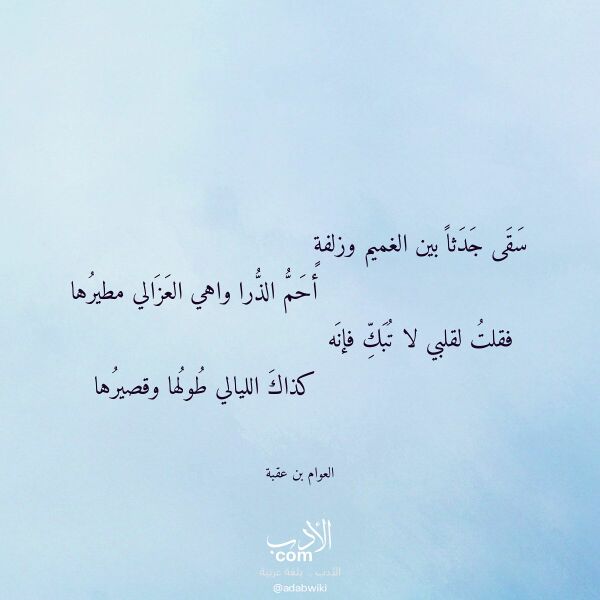 سَقَى جَدَثاً بين الغميم وزلفةٍ
أَحَمُّ الذُّرا واهي العَزَالي مطيرُها
فقلتُ لقلبي لا تُبَكِّ فإنَه
كذاكَ الليالي طُولُها وقصيرُها
العوام بن عقبة
الأدب
com
الأدب .. بلغة عربية
@adabwiki